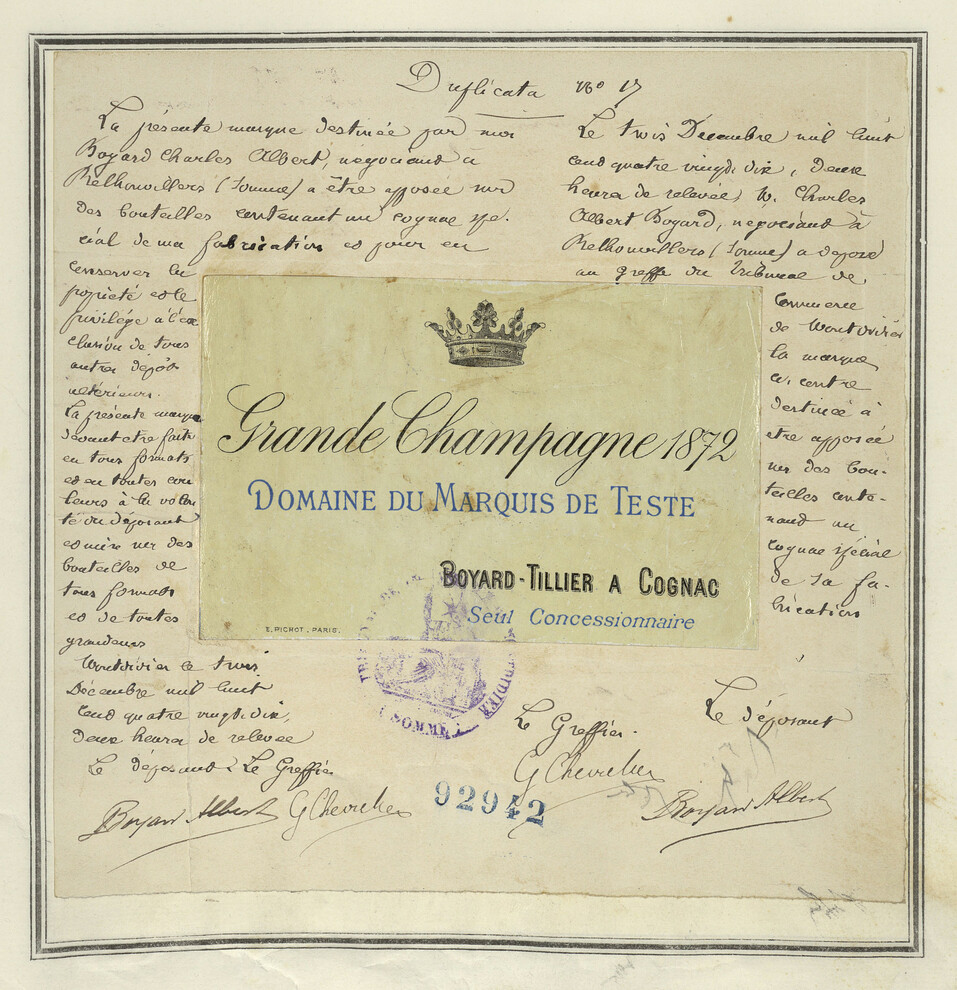 Duplicata No 17
La présente marque destinée par moi
Boyard Charles Albert, négociand à
Rethonvillers (Somme) a être apposée sur
des bouteilles contenant un cognac spé-
cial de ma fabrication et pour en
conserver la
propieté et le
privilége a l'ex
clusion de tous
autres dépôts
ultérieurs.
La présente marque
devant etre faite
en tous formats
et en toutes cou
leurs à la volon
té du déposant
et mise sur des
bouteilles de
tous formats
et de toutes
grandeurs
Montdidier ce trois
Décembre mil huit
cend quatre vingt dix,
deux heures de relevée
Le déposand Le Greffier
Boyard Albert G Chevelier
Le trois Decembre mil huit
cend quatre vingt dix, deux
heures de relevée, M. Charles
Albert Boyard, négociand à
Rethonvillers (Somme) a déposé
au greffe du Tribunal de
Commerce
de Montdidier
la marque
ci, contre
destinée à
etre apposée
sur des bou-
teilles conte-
nand un
cognac spécial
de sa fa-
brication
Le Greffier.
G Chevelier
Le déposant
Boyard Albert
Grande Champagne 1872
DOMAINE DU MARQUIS DE TESTE
BOYARD-TILLIER A COGNAC
Seul Concessionnaire
E. PICHOT. PARIS.
(SOMME)
92942